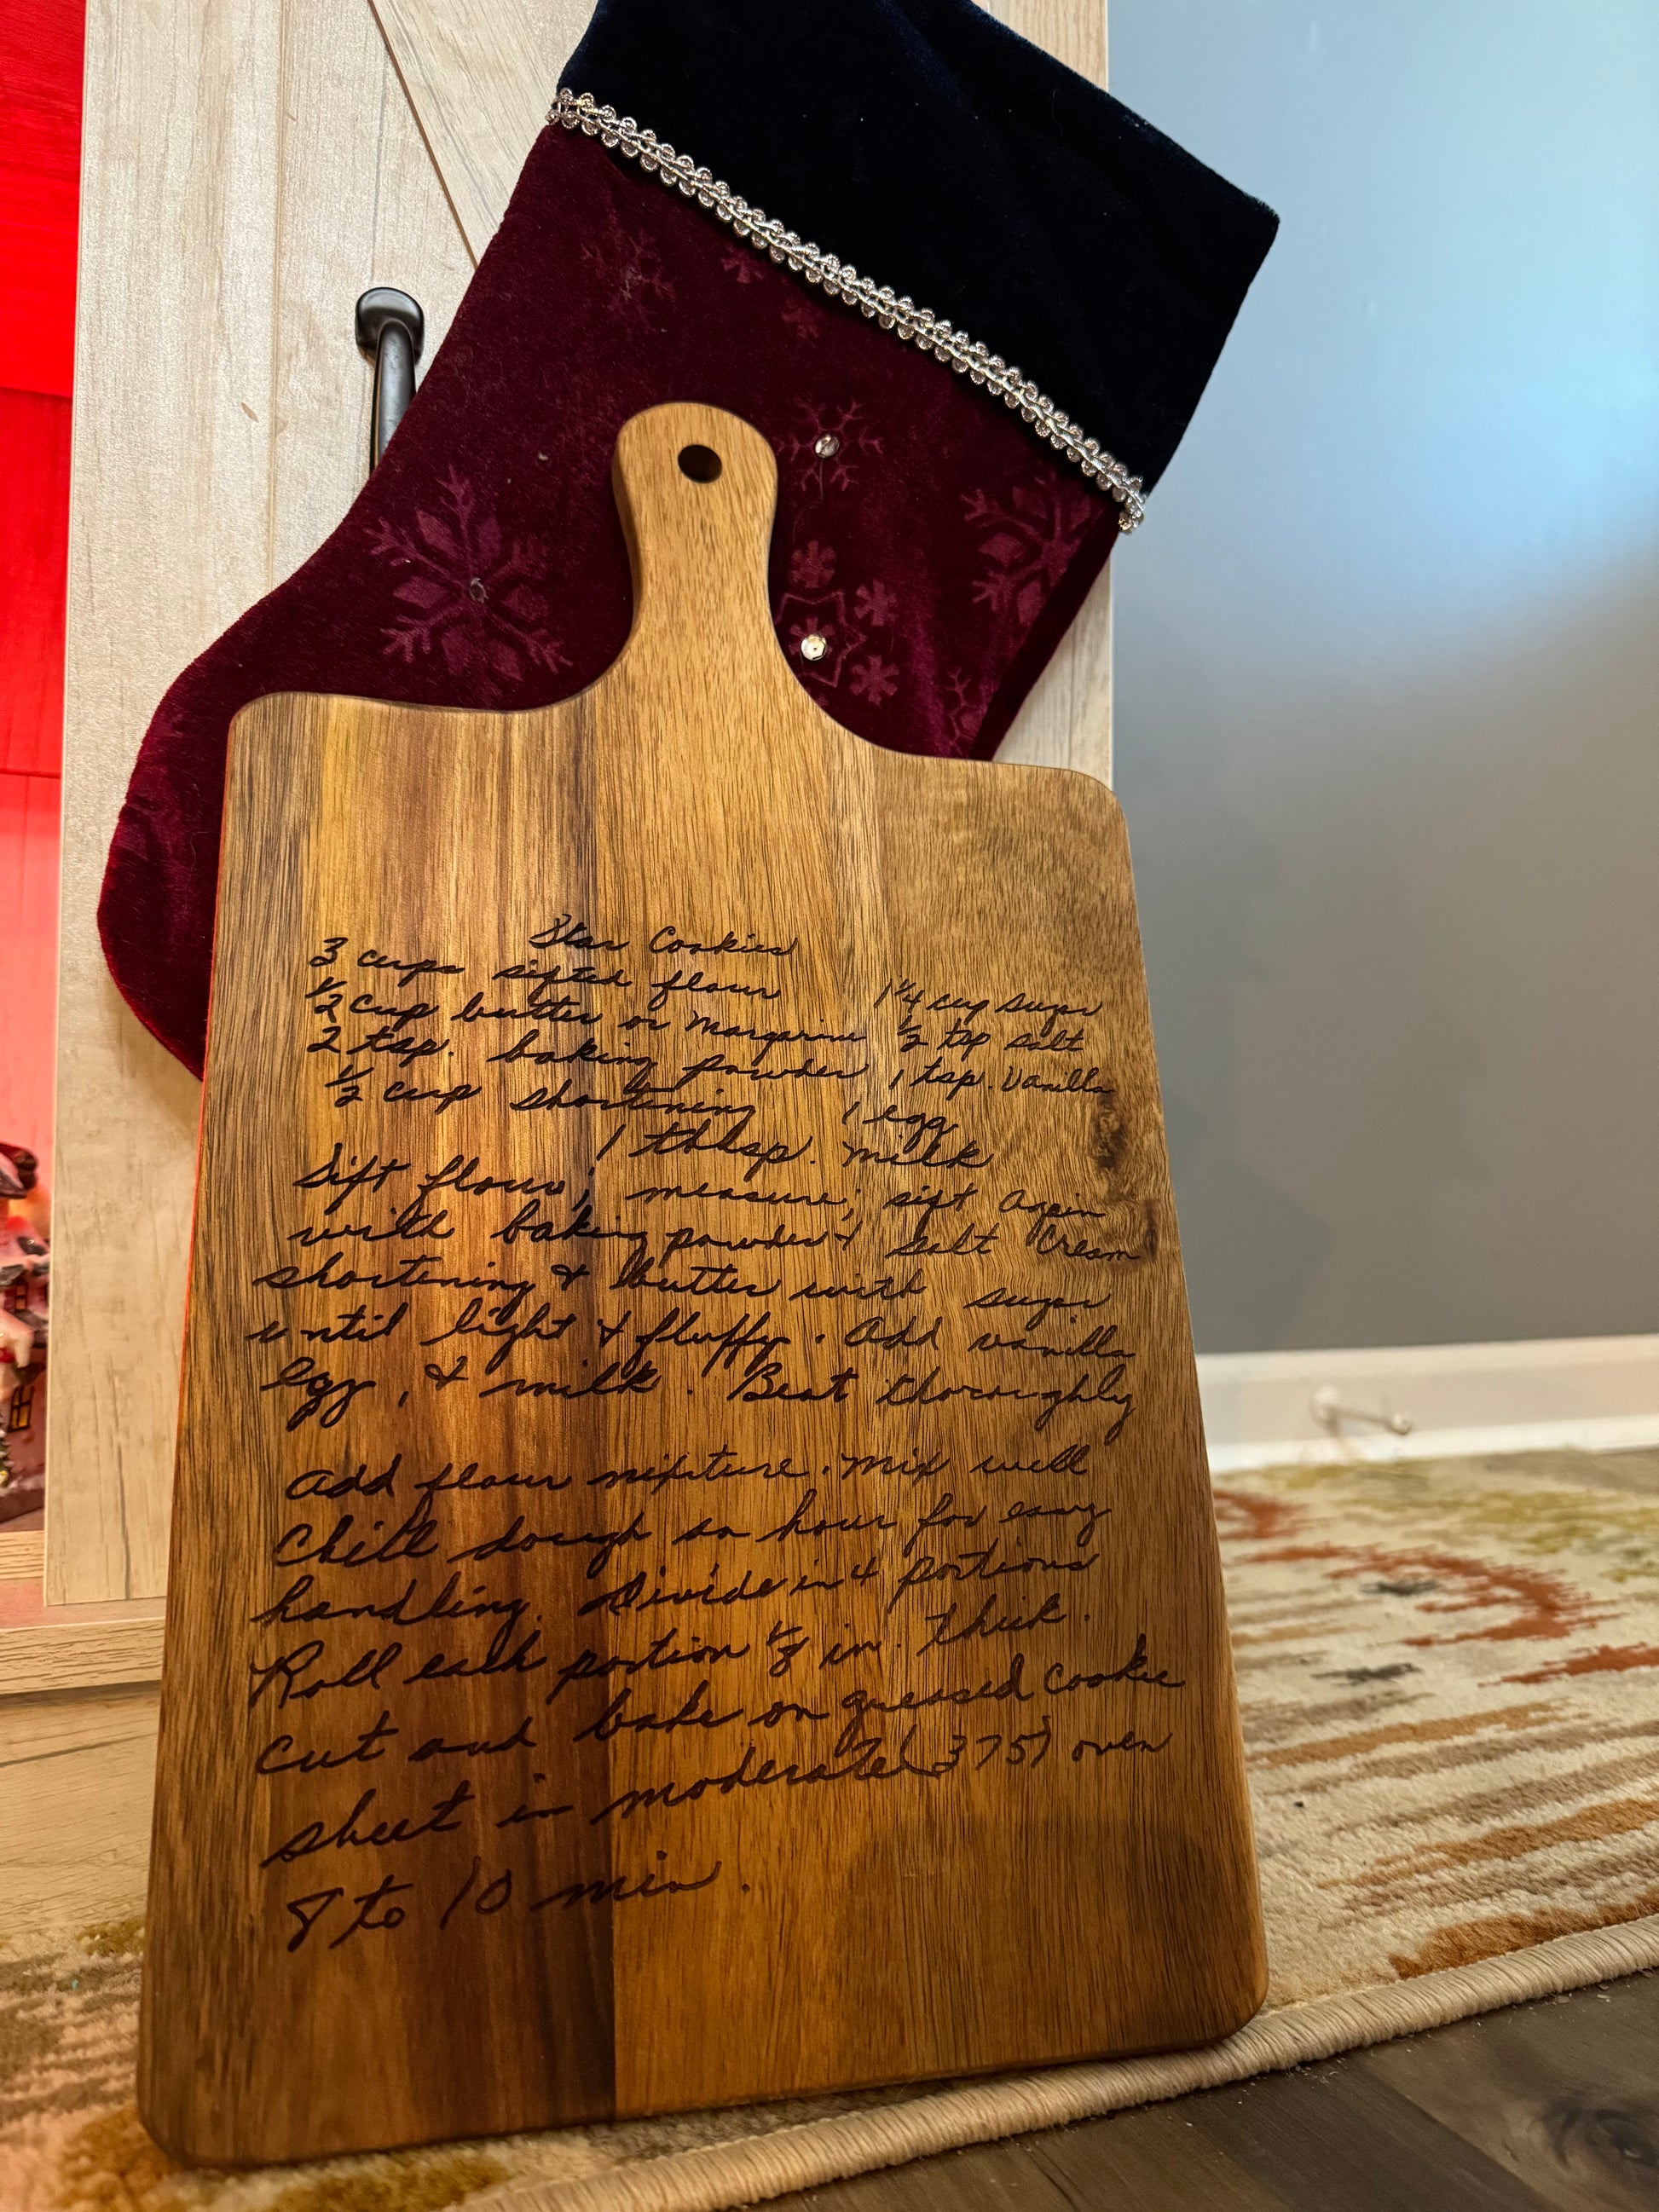 Star Cookies
3 cups sifted flour 1 1/4 cup sugar
1/2 cup butter or margarine 1/2 tsp salt
2 tsp. baking powder 1 tsp. Vanilla
1/2 cup shortening 1 egg
1 tblsp. milk
Sift flour; measure; sift again
with baking powder & salt Cream
shortening & butter with sugar
until light & fluffy. Add vanilla
egg, & milk. Beat thoroughly
Add flour mixture. Mix well
Chill dough an hour for easy
handling. Divide in 4 portions
Roll each portion 1/8 in. thick.
Cut and bake on greased cookie
sheet in moderate (375) oven
8 to 10 min.